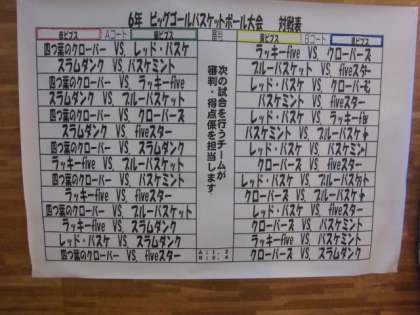 6年 ビッグゴールバスケットボール大会 対戦表
赤ビブス Aコート 緑ビブス 審判 黄ビブス Bコート 青ビブス
四つ葉のクローバー VS. レッド・バスケ
スラムダンク VS. バスケミント
四つ葉のクローバー VS. ラッキーfive
スラムダンク VS. ブルーバスケット
四つ葉のクローバー VS. クローバーズ
スラムダンク VS. fiveスター
四つ葉のクローバー VS. スラムダンク
ラッキーfive VS. ブルーバスケット
四つ葉のクローバー VS. バスケミント
ラッキーfive VS. fiveスター
四つ葉のクローバー VS. ブルーバスケット
ラッキーfive VS. スラムダンク
レッド・バスケ VS. スラムダンク
四つ葉のクローバー VS. fiveスター
次の試合を行うチームが
審判・得点係を担当します
ラッキーfive VS. クローバーズ
ブルーバスケット VS. fiveスター
レッド・バスケ VS. クローバーズ
バスケミント VS. fiveスター
レッド・バスケ VS. ラッキーfive
バスケミント VS. ブルーバスケット
レッド・バスケ VS. バスケミント
クローバーズ VS. fiveスター
レッド・バスケ VS. ブルーバスケット
クローバーズ VS. ブルーバスケット
レッド・バスケ VS. fiveスター
クローバーズ VS. バスケミント
ラッキーfive VS. バスケミント
クローバーズ VS. スラムダンク